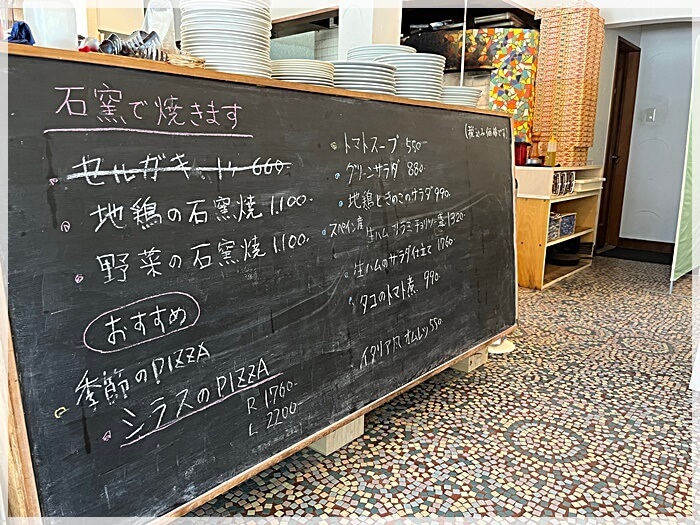 石窯で焼きます
セルガキ 660
地鶏の石窯焼 1.100-
野菜の石窯焼 1.100-
おすすめ
季節のPIZZA
シラスのPIZZA
R 1760-
L 2200
(税込み価格です)
トマトスープ 550
グリーンサラダ 880
地鶏ときのこのサラダ 990
スペイン産 生ハム サラミ チョリソー 1320
生ハムのサラダ仕立て 1760
タコのトマト煮 990
イタリア風オムレツ 550